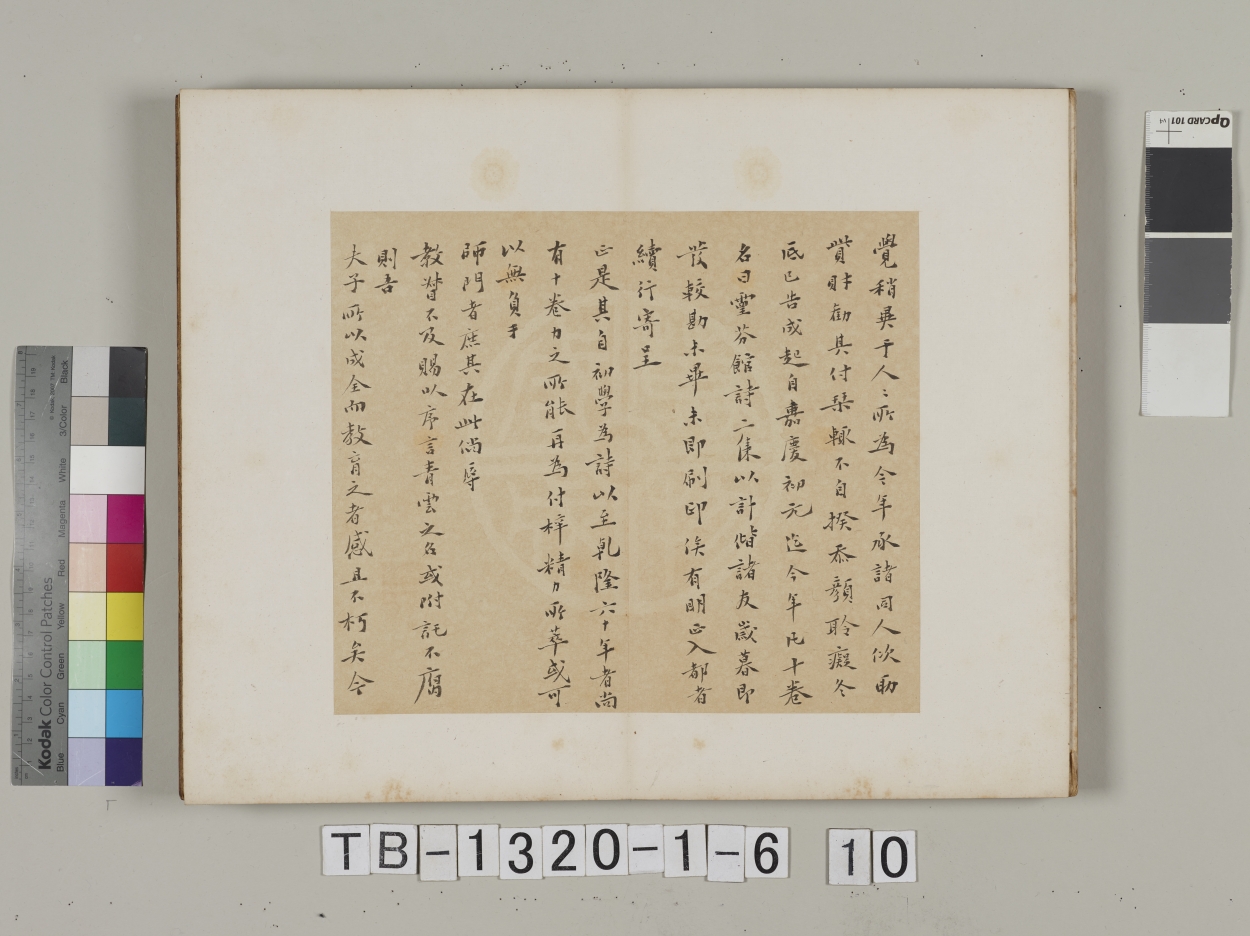 覺稍異于人人所爲今年承諸同人佽助
貲財勸其付棃輒不自揆忝顏聆癡冬
底已告成起自嘉慶初元迄今年凡十卷
名曰靈芬館詩二集以計偕諸友歲暮即
發較勘未畢未即刷印俟有明正入都者
續行寄呈
正是其自初學爲詩以至乹隆六十年者尚
有十卷力之所能再爲付梓精力所萃或可
以無負于
師門者庶其在此倘辱
教督不及賜以序言青雲之名或附託不腐
則吾
夫子所以成全而教育之者感且不朽矣今
TB-1320-1-6 10
QPCARD 101
Kodak Color Control Patches
Blue Cyan Green Yellow Red Magenta White 3/Color Black